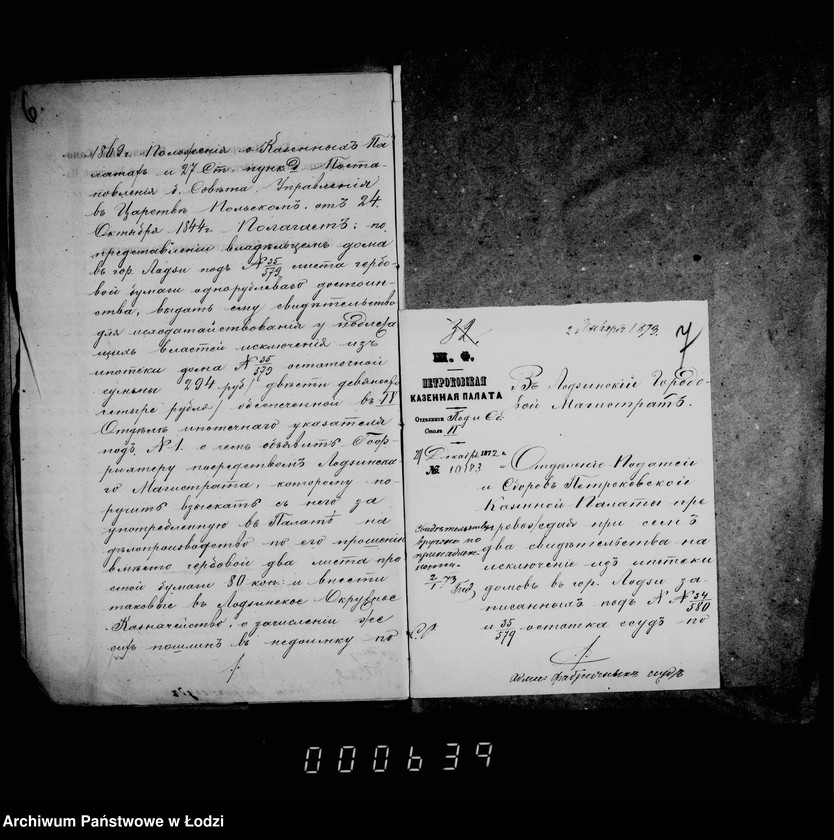 6.
1869г. Положенія о Казенныхъ Па
латахъ и 27 Ст. пункт Поста-
новленія б. Совѣта Управленія
въ Царствѣ Польскомъ отъ 24
Октября 1844г. Полагаетъ: по
представленіи владѣльцемъ дома
въ гор. Лодзи подъ № 35/579 листа гербо-
вой бумаги однорублеваго достоин-
ства, выдать ему свидѣтельство
для исходатайствованія у подлежа
щихъ властей исключенія изъ
ипотеки дома № 35/579 остаточной
суммы 294 руб/ двѣсти девяносто
четыре рубля/ обезпеченной въ IV
Отдѣлѣ ипотечнаго указателя
подъ № 1. о чемъ объявить
посредствомъ Лодзинска-
го Магистрата, которому по-
ручить взыскать съ него за
употребленную въ Палатѣ на
дѣлопроизводство по его прошенію
вмѣсто гербовой два листа про
стой бумаги 80 коп: и внести
таковые въ Лодзинское Окружное
Казначейство, о зачисленіи же
сихъ пошлинъ въ недоимку по
32.
2 Января 1873.
7
М. Ф.
ПЕТРОКОВСКАЯ
КАЗЕННАЯ ПАЛАТА
Отдѣленіе Под. и Сб.
Столъ II
Декабря 1872 г.
№ 10183
Въ Лодзинскій Городо-
вой Магистратъ.
Отдѣленіе Податей
и Сборовъ Петроковской
Казенной Палаты пре
ровождая при семъ
два свидѣтельства на
исключеніе изъ ипотеки
домовъ въ гор. Лодзи за-
писанныхъ подъ № № 34/580
и 35/579 остатка ссудъ по
Свидѣтельства
вручено по
принадлеж-
ности
2/1 73
фабричныхъ ссудъ
000639
Archiwum Państwowe w Łodzi